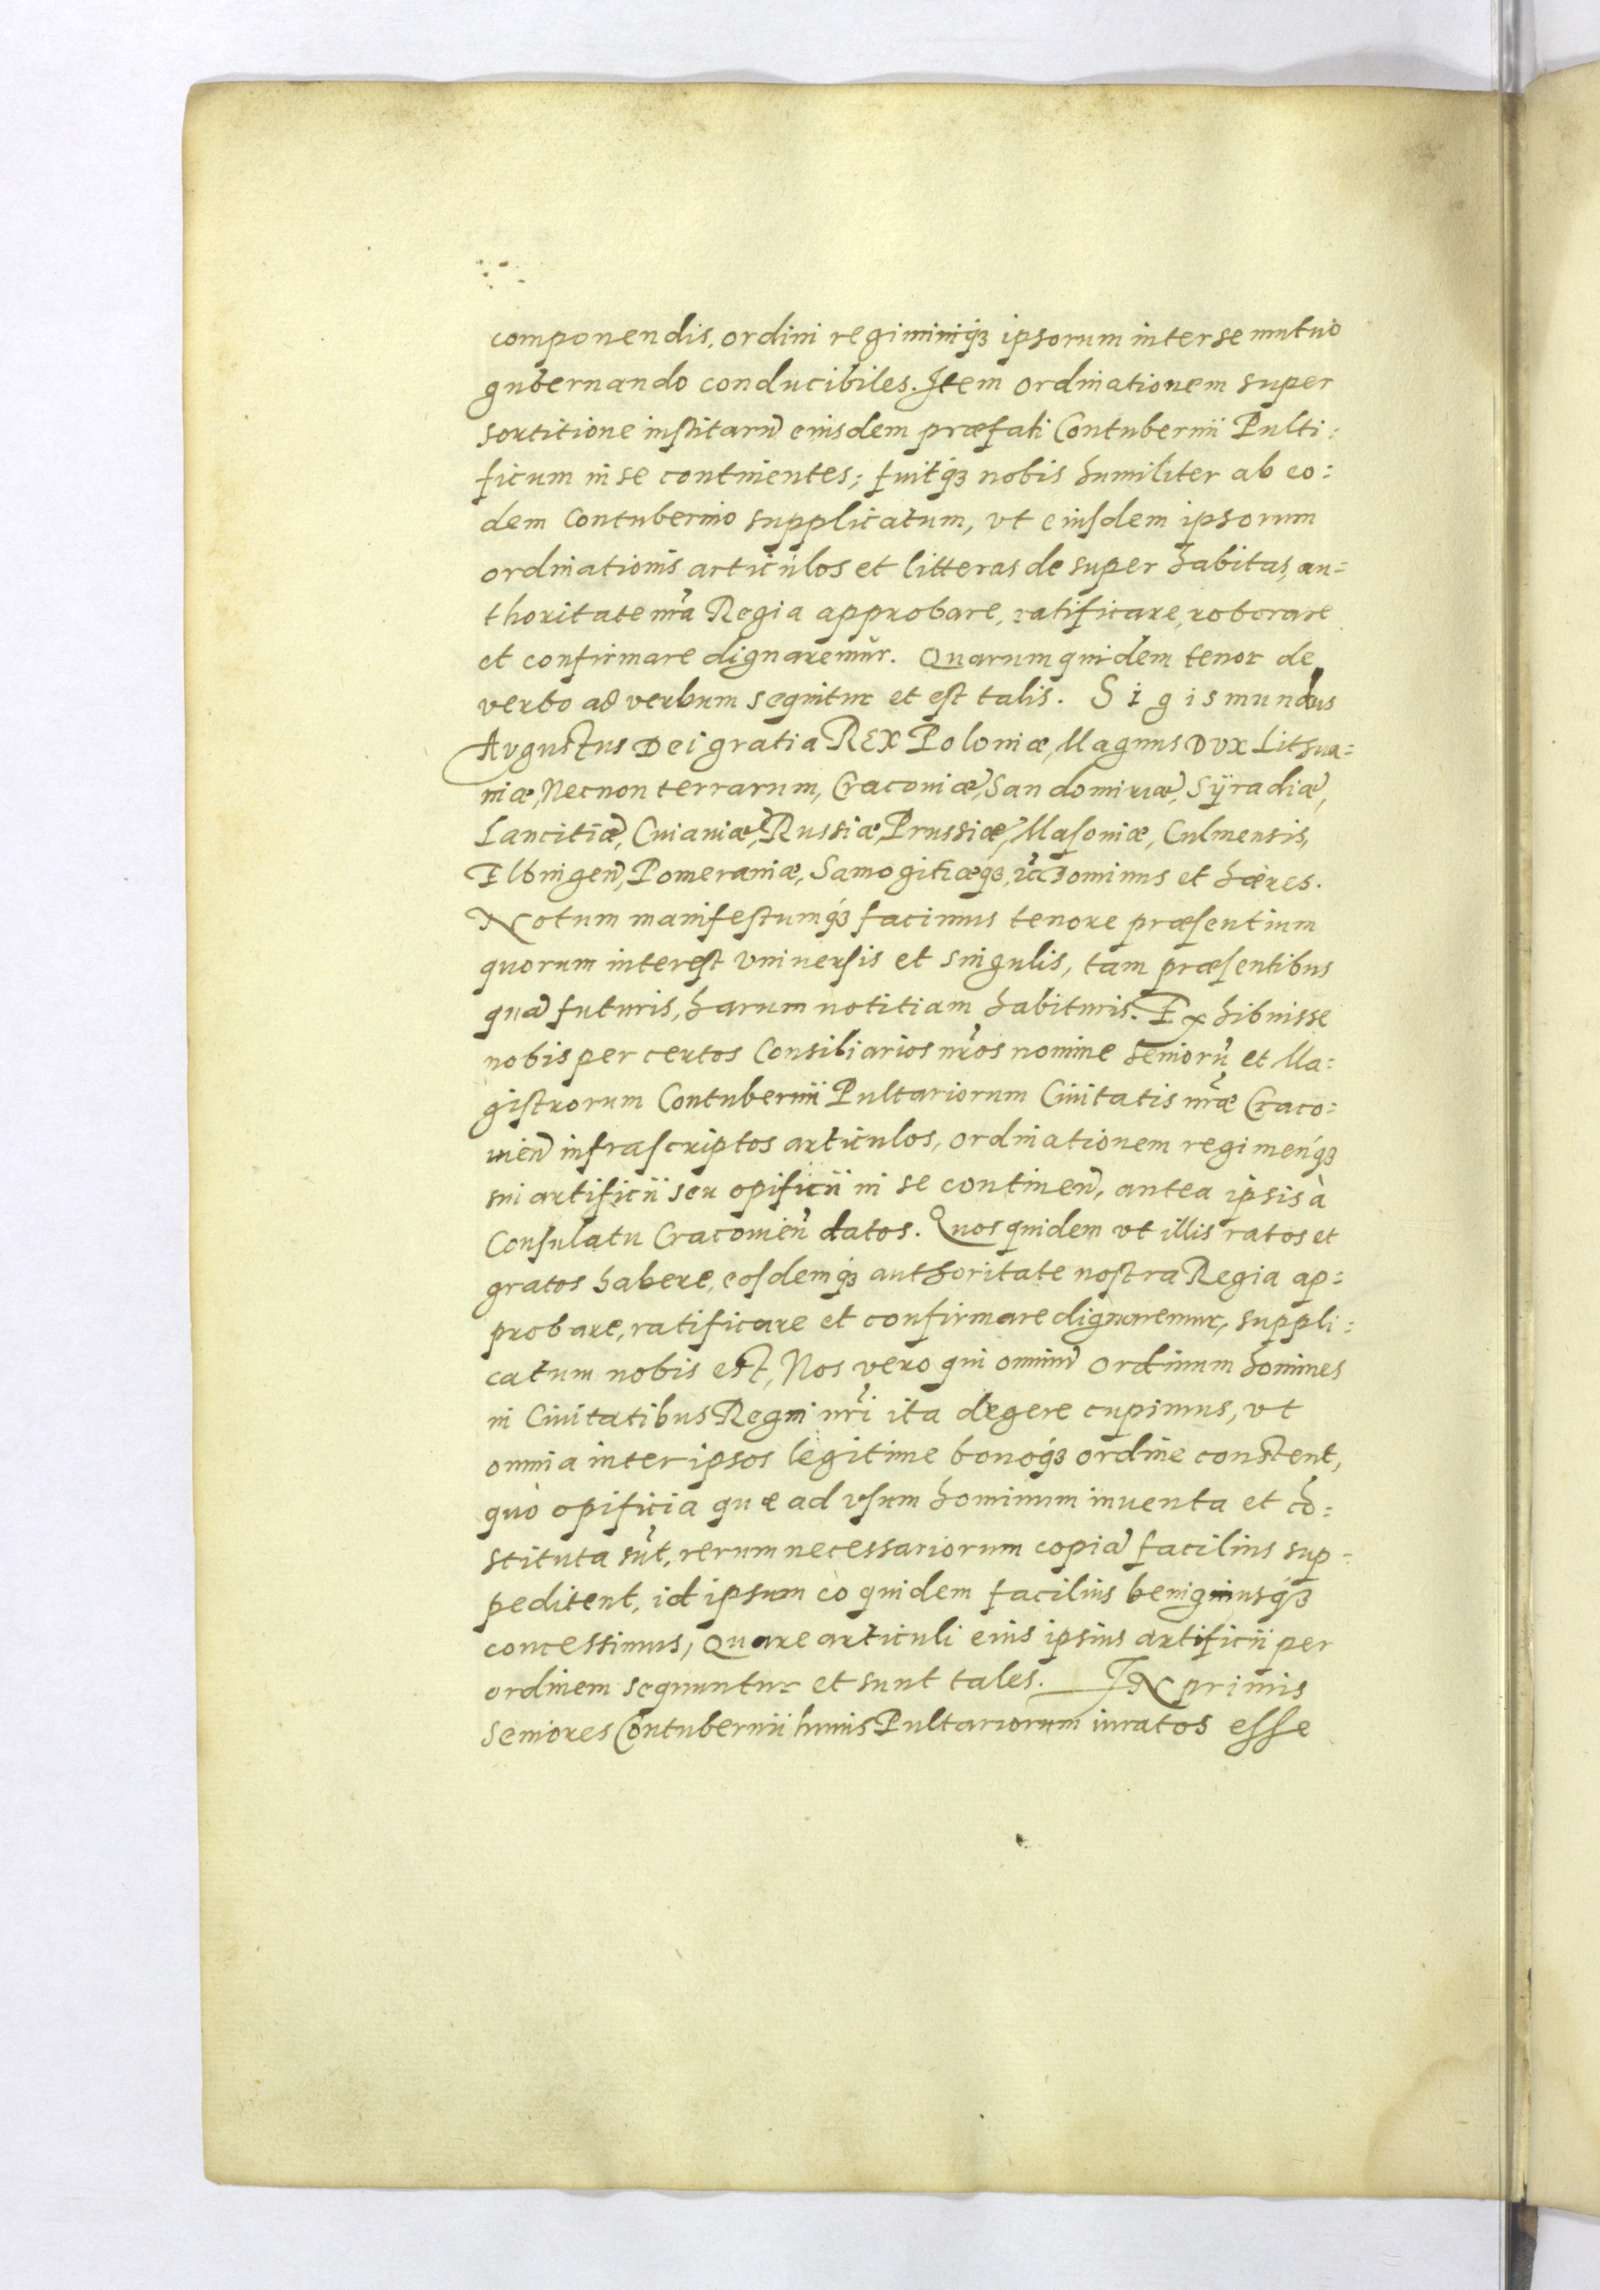 componendis, ordini regiminiqꝫ ipsorum inter se mutuo
gubernando conducibiles. Item ordinationem super
sortitione institarũ eiusdem præfati Contubernii Pulti:
ficum in se continentes; fuitqꝫ nobis humiliter ab eo:
dem Contubernio supplicatum, vt eiusdem ipsorum
ordinationis articulos et litteras de super habitas, au=
thoritate nr̃a Regia approbare, ratificare, roborare
et confirmare dignaremur. Quarum quidem tenor de
verbo ad verbum sequitur et est talis. Sigismundus
Augustus Dei gratia REX Poloniæ, Magnus Dux Lithua=
niæ, Necnon terrarum, Cracoviæ, Sandomiriæ, Sÿradiæ,
Lancitiæ, Cuiaviæ, Russiæ, Prussiæ, Masoviæ, Culmensis,
Elbingen̄, Pomeraniæ, Samogitiæqꝫ, Dominus et hæres.
Notum manifestumqꝫ facimus tenore præsentium
quorum interest vniversis et singulis, tam præsentibus
quã futuris, harum notitiam habituris. Exhibuisse
nobis per certos Consiliarios nr̃os nomine seniorũ et Ma:
gistrorum Contubernii Pultariorum Civitatis nr̃æ Craco:
vien̄ infrascriptos articulos, ordinationem regimenqꝫ
sui artificii seu opificii in se continen̄, antea ipsis à
Consulatu Cracovien̄ datos. Quos quidem vt illis ratos et
gratos habere, eosdemqꝫ authoritate nostra Regia ap:
probare, ratificare et confirmare dignaremur, suppli:
catum nobis est, Nos vero qui omniũ ordinum homines
in Civitatibus Regni nr̃i ita degere cupimus, vt
omnia inter ipsos legitime bonoqꝫ ordine constent,
quò opificia quæ ad vsum hominum inventa et cō:
stituta sũt, rerum necessariorum copiã facilius sup=
peditent, id ipsum eo quidem facilius benigniusqꝫ
concessimus, Quare articuli eius ipsius artificii per
ordinem sequuntur et sunt tales. INprimis
seniores Contubernii huius Pultariorum iuratos esse